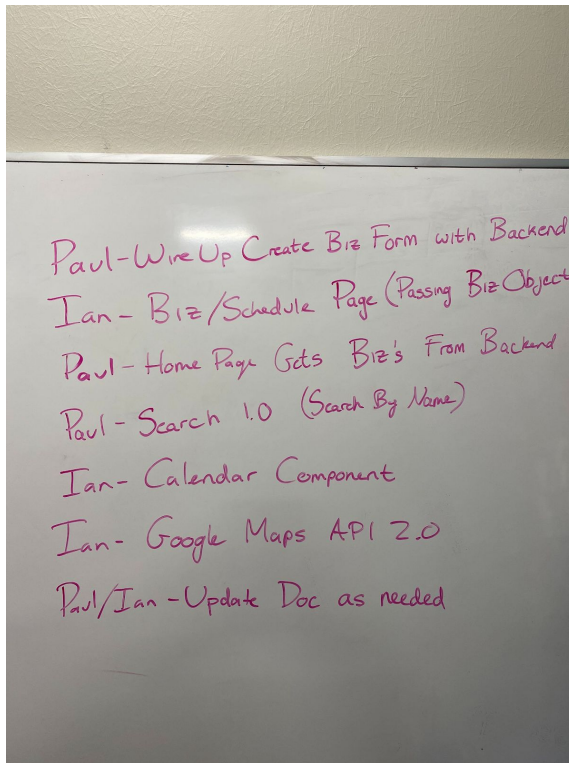 Paul-Wire Up Create Biz Form with Backend
Ian- Biz/Schedule Page (Passing Biz Object
Paul-Home Page Gets Biz's From Backend
Paul-Search 1.0 (Search By Name)
Ian- Calendar Component
Ian- Google Maps API 2.0
Paul/Ian-Update Doc as needed